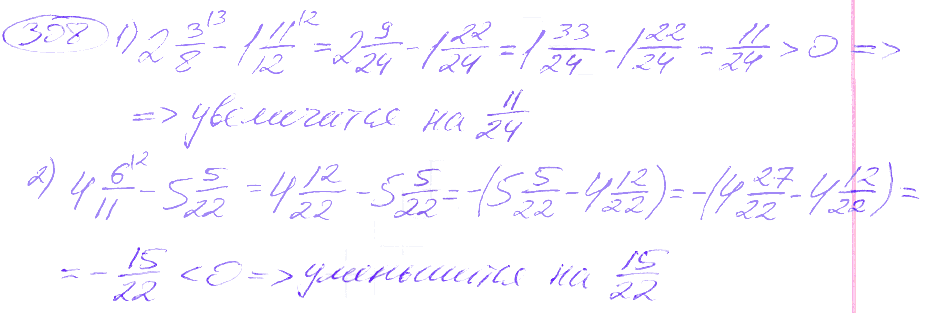 308 1) 2 3/8^\3 - 1 11/12^\2 = 2 9/24 - 1 22/24 = 1 33/24 - 1 22/24 = 11/24 > 0 =>
=> увеличится на 11/24
2) 4 6/11^\2 - 5 5/22 = 4 12/22 - 5 5/22 = -(5 5/22 - 4 12/22) = -(4 27/22 - 4 12/22) =
= - 15/22 < 0 => уменьшится на 15/22